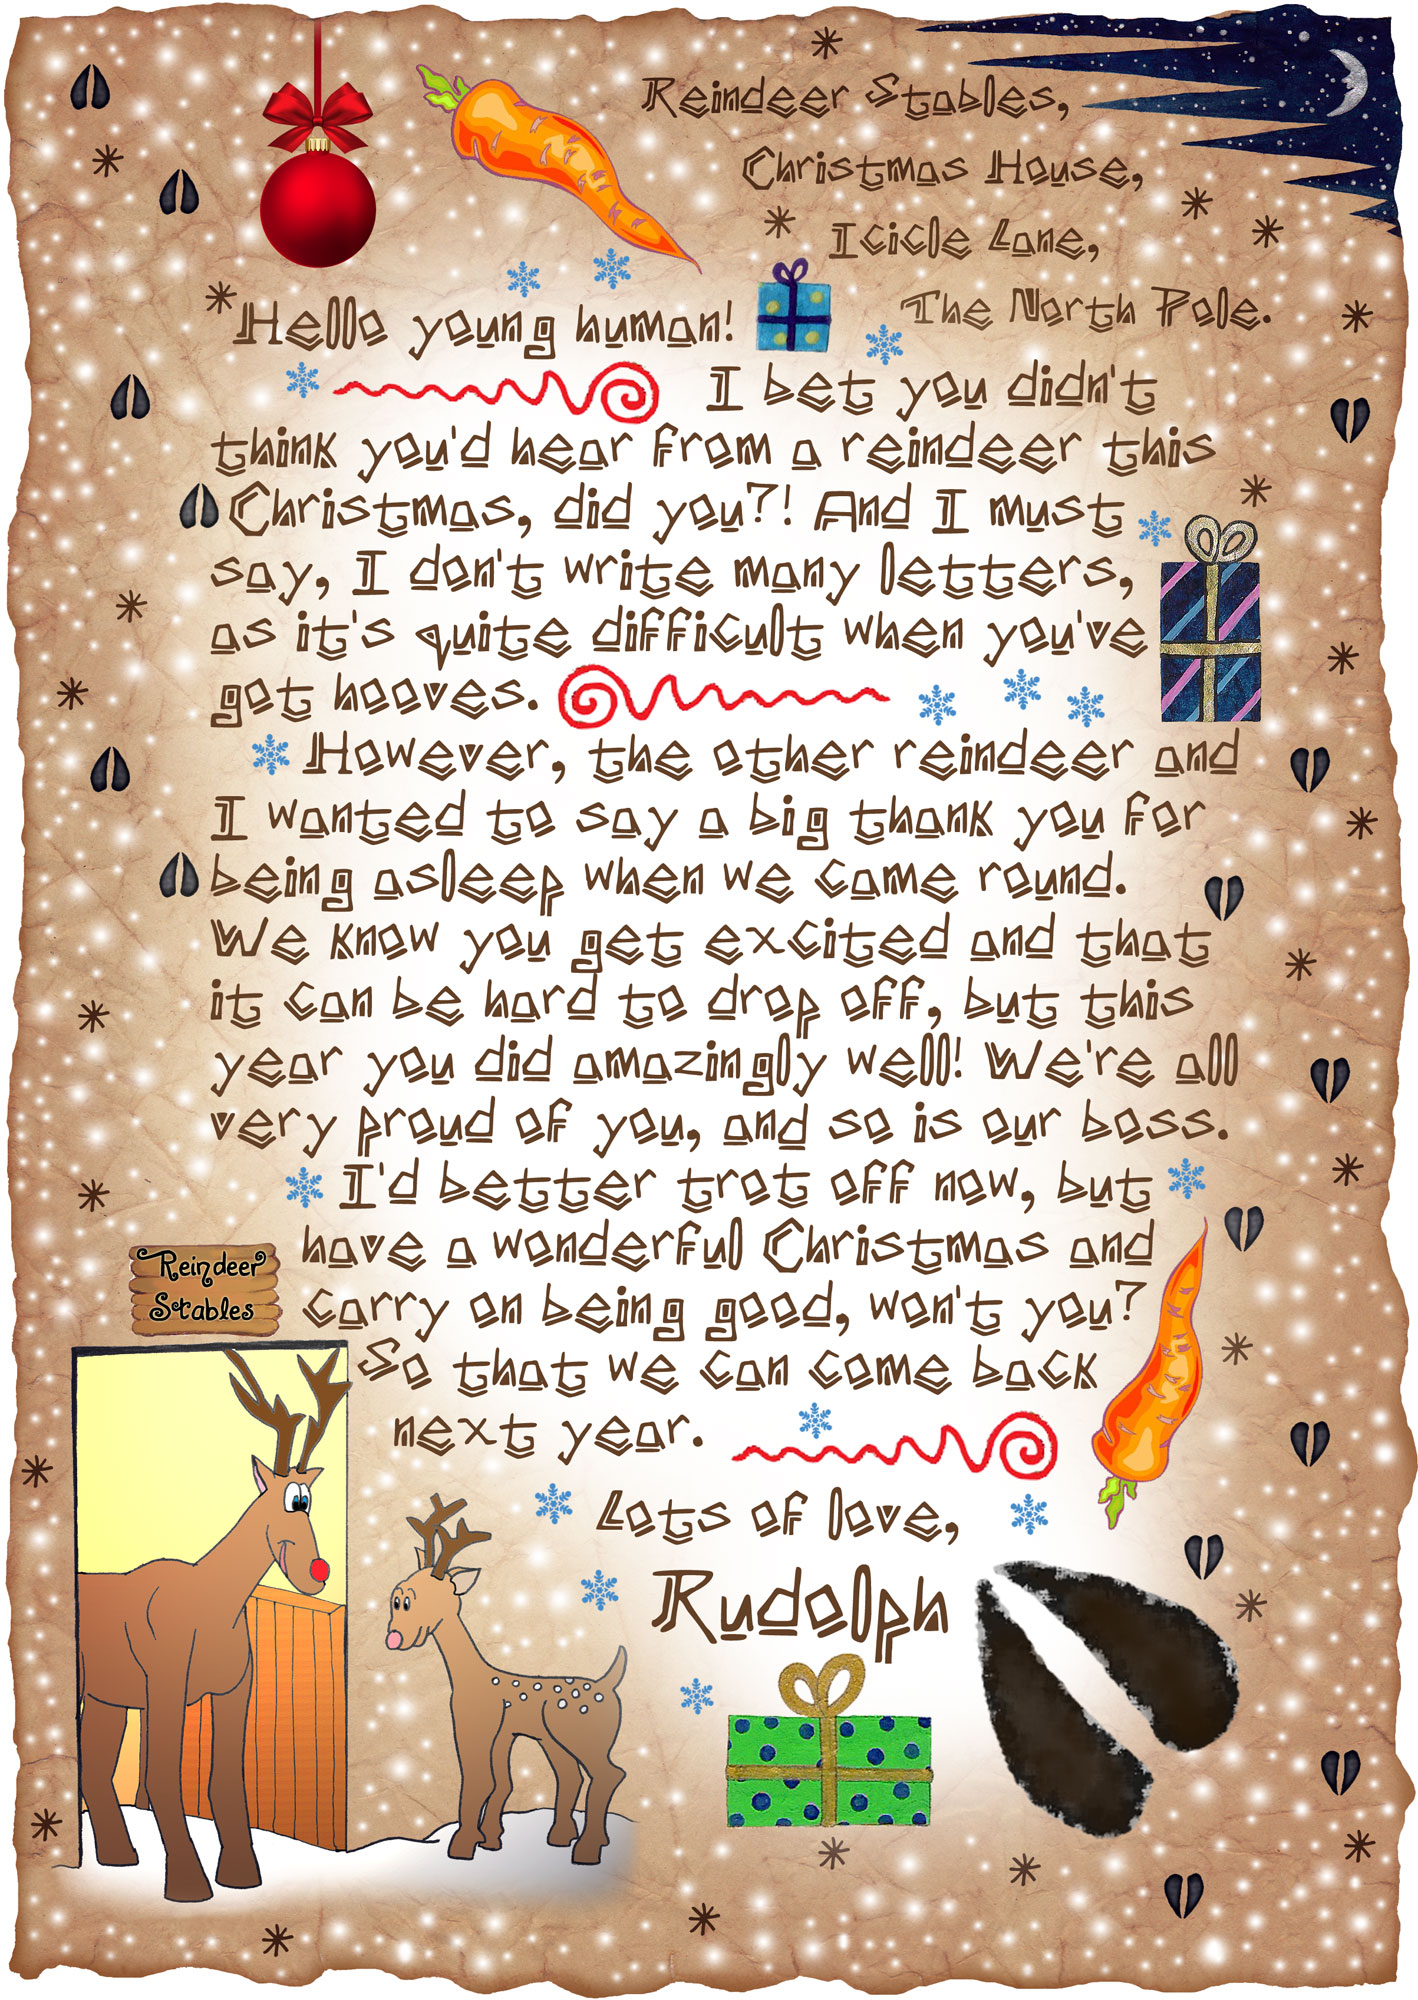 Reindeer Stables,
Christmas House,
Icicle Lane,
The North Pole.
Hello young human!
I bet you didn't
think you'd hear from a reindeer this
Christmas, did you?! And I must
say, I don't write many letters,
as it's quite difficult when you've
got hooves.
However, the other reindeer and
I wanted to say a big thank you for
being asleep when we came round.
We know you get excited and that
it can be hard to drop off, but this
year you did amazingly well! We're all
very proud of you, and so is our boss.
I'd better trot off now, but
have a wonderful Christmas and
carry on being good, won't you?
So that we can come back
next year.
Lots of love,
Rudolph
Reindeer
Stables